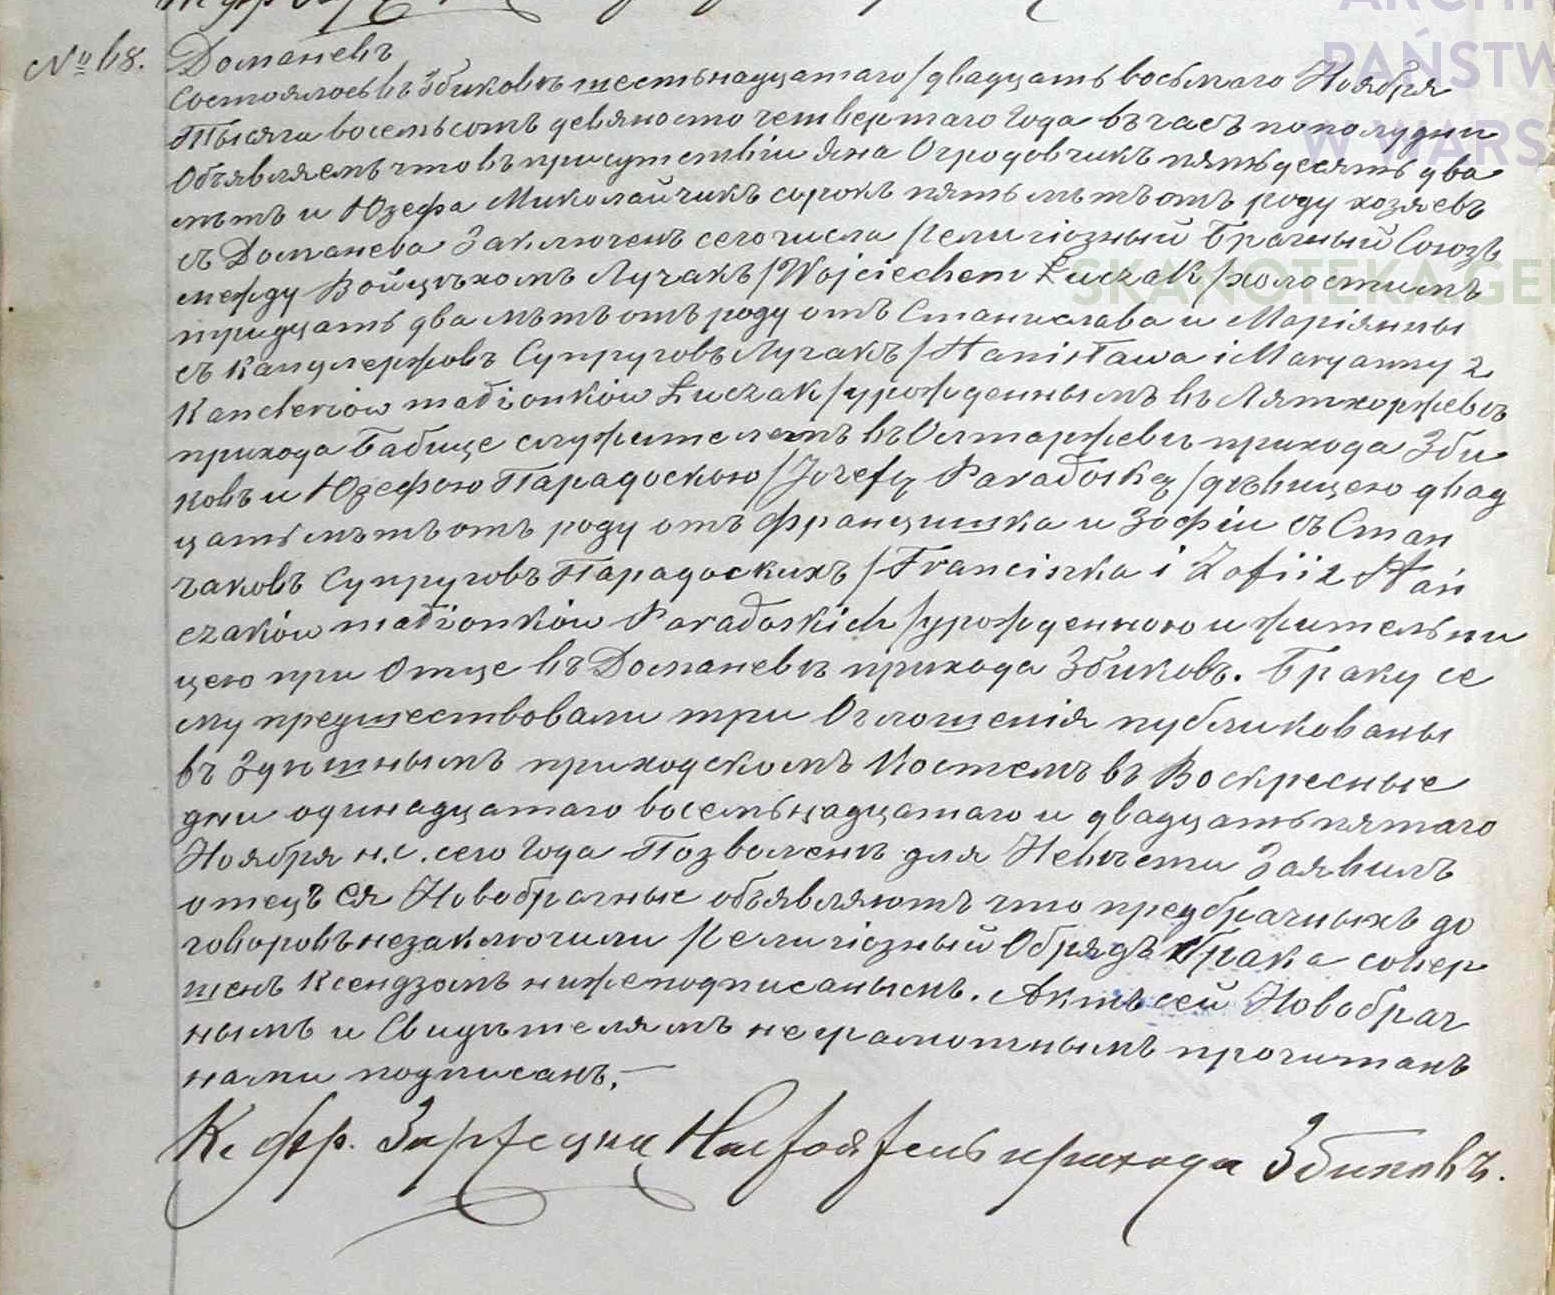 № 68.
Доманевъ
Состоялось въ Збиковѣ шестьнадцатаго/двадцать восьмаго Ноября
Тысяча восемьсотъ девяносто четвертаго Года въ часъ пополудни
Объявляемъ что въ присутствіи Яна Огродовчикъ пятьдесятъ два
лѣтъ и Юзефа Миколайчикъ сорокъ пять лѣтъ отъ роду хозяевъ
съ Доманева Заключенъ сего числа Религіозный Брачный Союзъ
между Войцѣхомъ Лучакъ/Wojciechem Łuczak/холостымъ
тридцать два лѣтъ отъ роду отъ Станислава и Маріянны
съ Канцлержовъ Супруговъ Лучакъ/Stanisława i Maryanny z
Kanclerzów małżonków Łuczak/урожденнымъ въ Лятхоржевѣ
прихода Бабице служителемъ въ Олтаржевѣ прихода Зби
ковъ и Юзефою Парадоскою/Józefą Paradoską/дѣвицею двад
цать лѣтъ отъ роду отъ Францишка и Зофіи съ Стан
чаковъ Супруговъ Парадоскихъ/Franciszka i Zofii z Stań
czaków małżonków Paradoskich/урожденною и жительни
цею при Отце въ Доманевѣ прихода Збиковъ. Браку се
му предшествовали три Оглошенія публикованы
въ Здѣшнымъ приходскомъ Костелѣ въ Воскресные
дни одинадцатаго восемьнадцатаго и двадцать пятаго
Ноября н.с. сего Года Позволенѣ для Невѣсты Заявилъ
отецъ Ея Новобрачные объявляютъ что предбрачныхъ до
говоровъ незаключили Религіозный Обрядъ брака совер
шенъ Ксендзомъ нижеподписанымъ. Актъ сей Новобрач
нымъ и Свидѣтелямъ неграмотнымъ прочитанъ
нами подписанъ.—
Кс. Фр. Настоятель прихода Збиковъ.
ARCHI
PAŃSTW
W WARS
SKANOTEKA GE